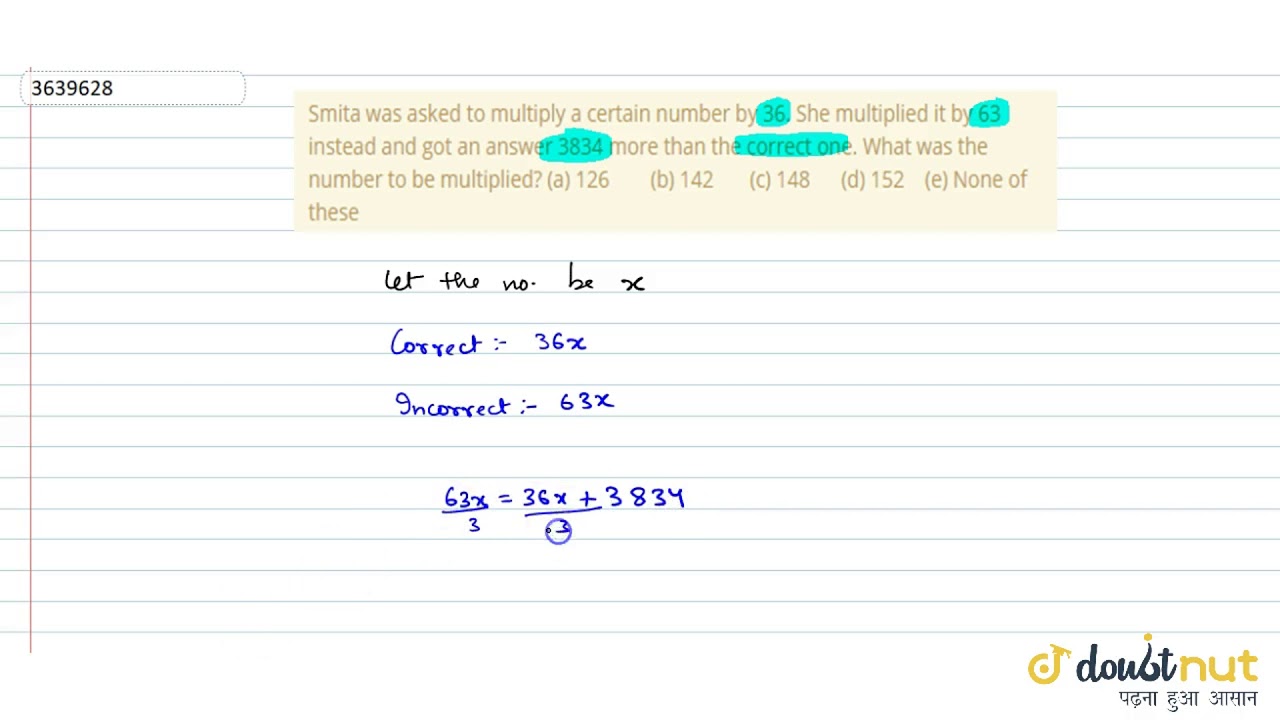 3639628
Smita was asked to multiply a certain number by 36. She multiplied it by 63
instead and got an answer 3834 more than the correct one. What was the
number to be multiplied? (a) 126 (b) 142 (c) 148 (d) 152 (e) None of
these
Let the no. be x
Correct :- 36x
Incorrect :- 63x
63x = 36x + 3834
3 3
doubtnut
पढ़ना हुआ आसान